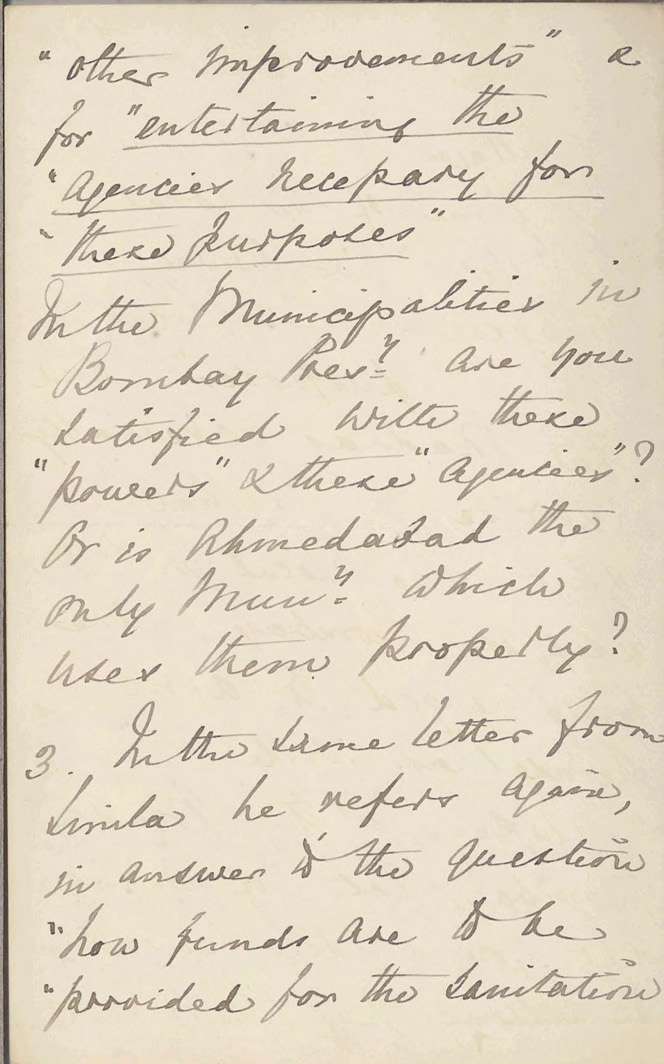 "other improvements" &
for "entertaining the
"agencies necessary for
"these purposes"
In the Municipalities in
Bombay Presy. are you
satisfied with these
"powers" & these "agencies"?
Or is Ahmedabad the
only Muny. which
uses them properly?
3. In the same letter from
Simla he refers again,
in answer to the question
"how funds are to be
"provided for the sanitation